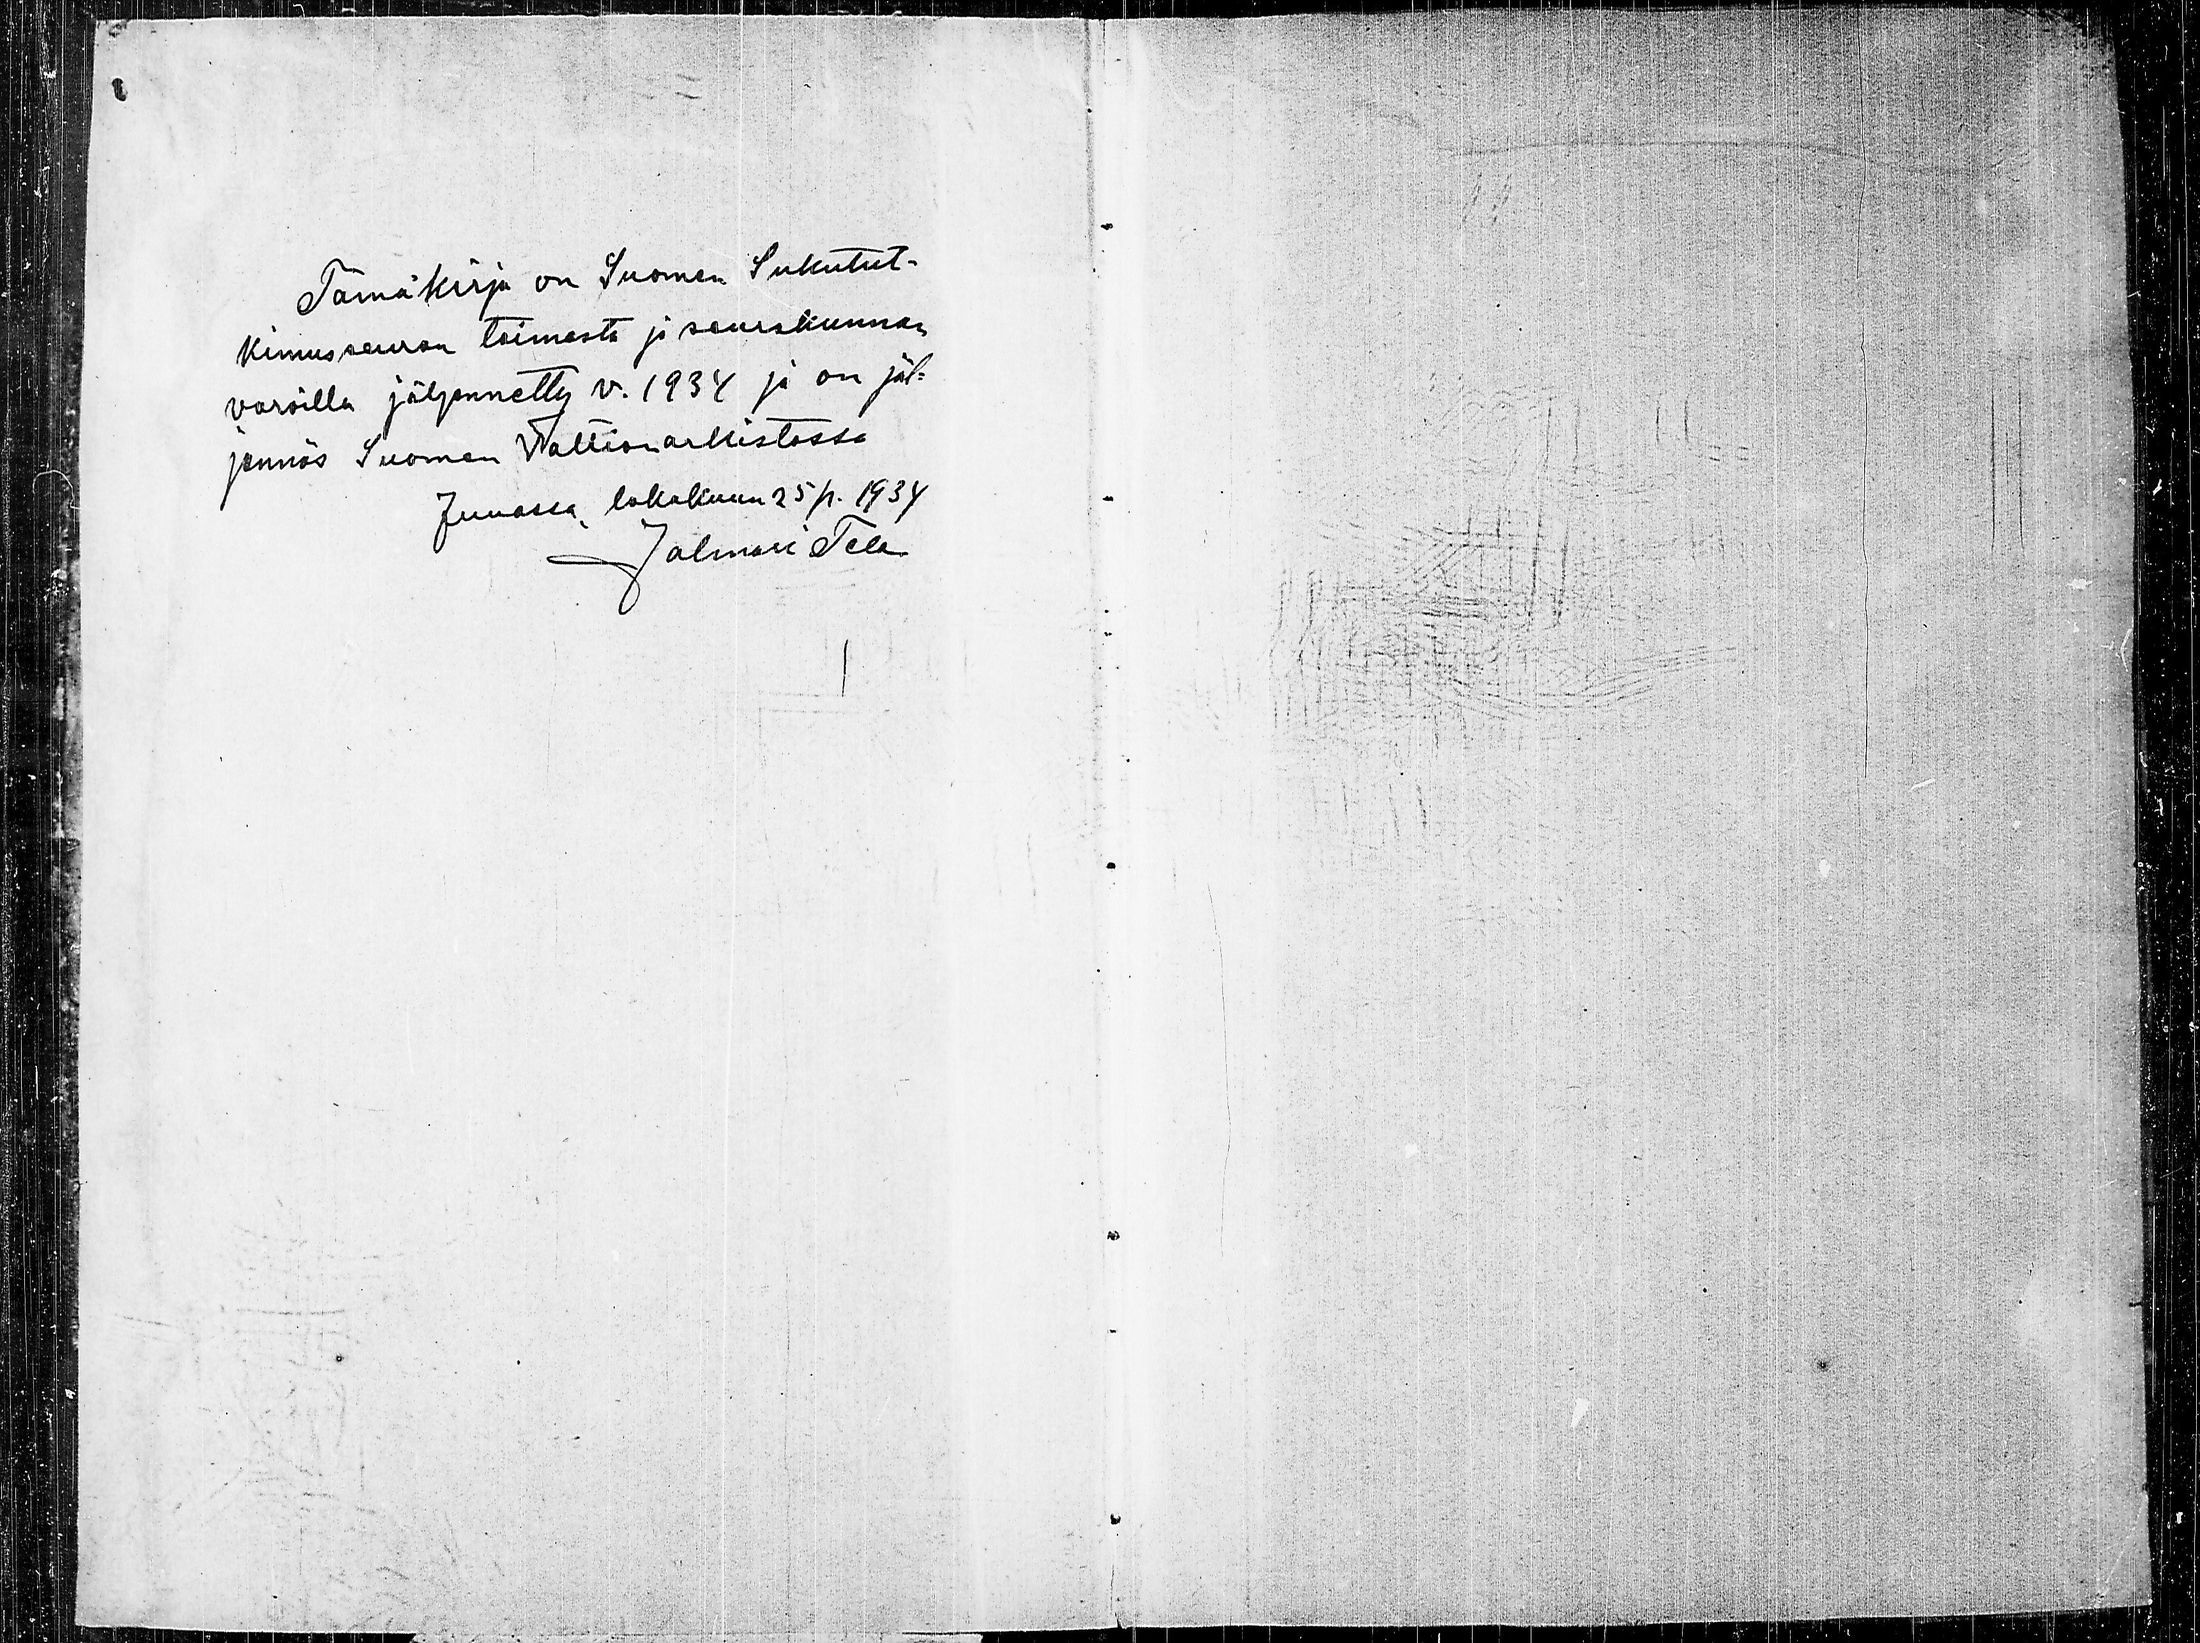 Tämä kirja on Suomen Sukutut-
kimusseuran toimesta ja seurakunnan
varoilla jäljennetty v. 1934 ja on jäl=
jennös Suomen Valtionarkistossa
Juuassa, lokakuun 25 p. 1934
Jalmari Tela